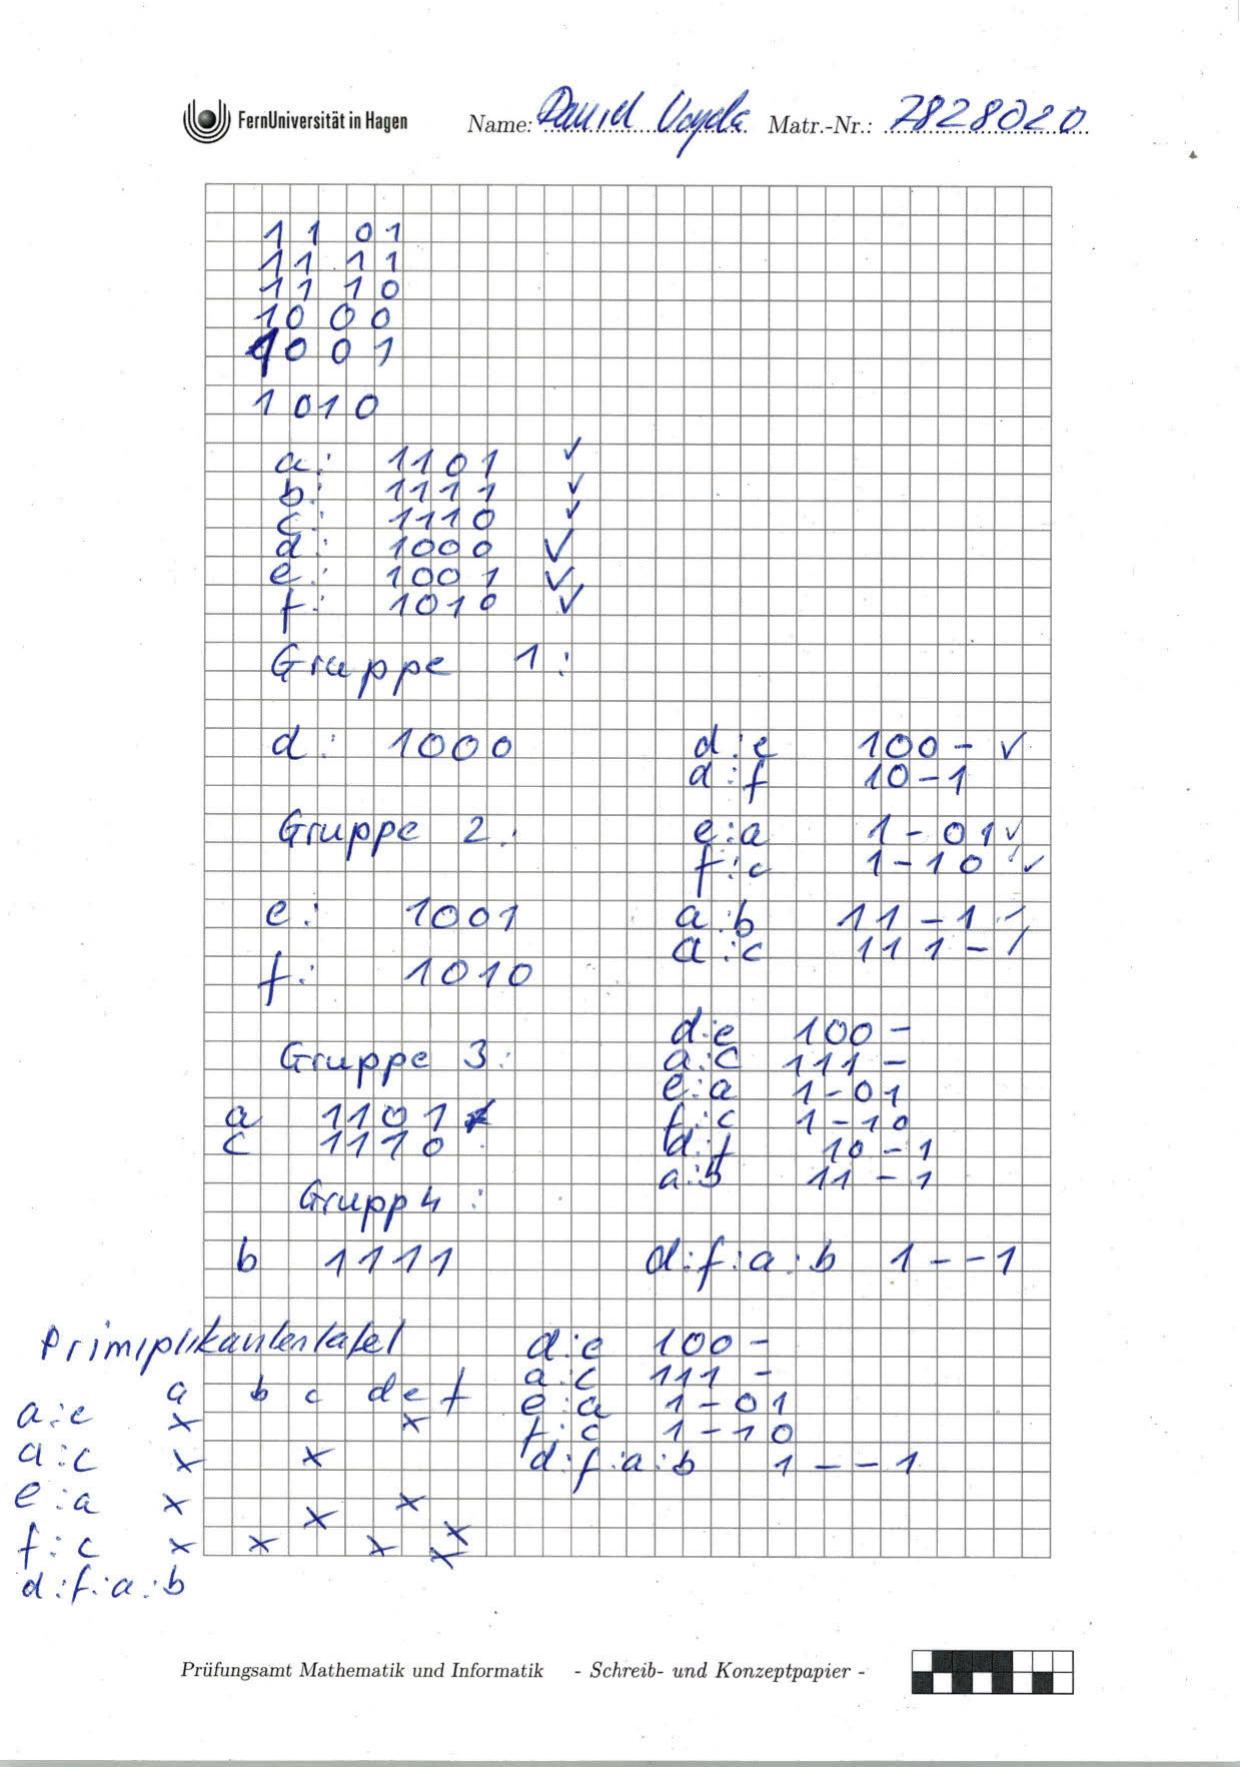 FernUniversität in Hagen Name: Daniel Matr.-Nr.: 7828020
1 1 0 1
1 1 1 1
1 1 1 0
1 0 0 0
1 0 0 1
1 0 1 0
a: 1101 ✓
b: 1111 ✓
c: 1110 ✓
d: 1000 ✓
e: 1001 ✓
f: 1010 ✓
Gruppe 1:
d: 1000
Gruppe 2:
e: 1001
f: 1010
Gruppe 3:
a 1101
c 1110
Grupp 4:
b 1111
d:e 100- ✓
d:f 10-1
e:a 1-01 ✓
f:c 1-10 ✓
a:b 11-1 ✓
a:c 111- ✓
d:e 100-
a:c 111-
e:a 1-01
f:c 1-10
d:f 10-1
a:b 11-1
d:f:a:b 1--1
d:e 100-
a:c 111-
e:a 1-01
f:c 1-10
d:f:a:b 1--1
Primiplikantentafel
a b c d e f
a:e x x
a:c x x
e:a x x
f:c x x x x x x
d:f:a:b
Prüfungsamt Mathematik und Informatik - Schreib- und Konzeptpapier -